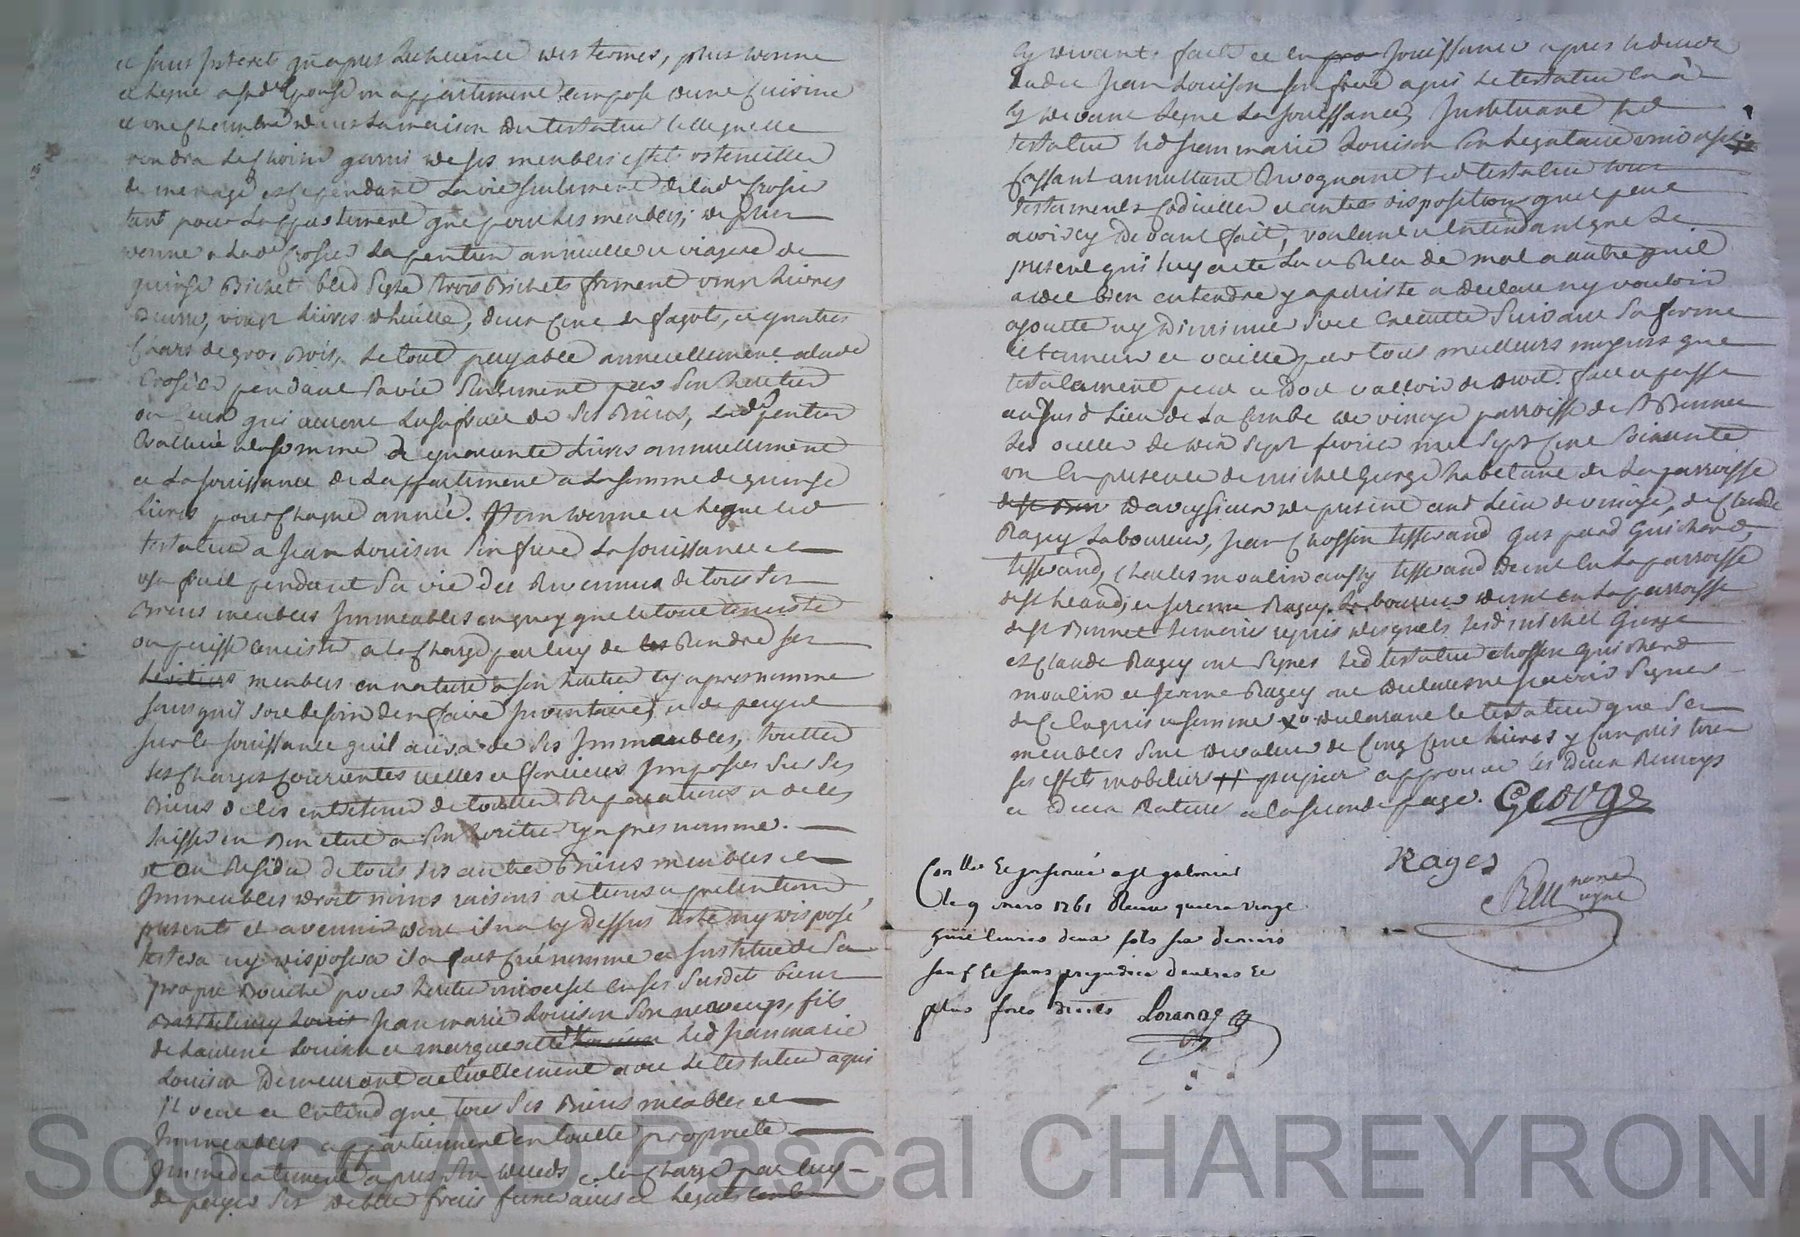 et sans Interets qu'apres Lecheance des termes, plus donne
et legue a sad. Epouse un appartement compose d'une Cuisine
et une Chambre dans La maison du testateur telle quelle
voudra Choisir garni de ses meubles effets ustencilles
de menage et ce pendant La vie seulement de lad. Crosier
tant pour Lappartement que pour Les meubles, de plus
donne a Lad. Crosier La pention annuelle et viagere de
quinse Bichet bled segle trois Bichets froment vingt Livres
Burre, vingt Livres d'huille, deux Cent de fagots, et quatres
Chars de gros Bois, Le tout payable annuellement a lad.
Crosier pendant sa vie seulement par son heritier
ou Ceux qui auront La jouissance de ses Biens, Lad. pention
Evalluée a la somme de quarante Livres annuellement
et La jouissance de Lappartement a La somme de quinse
Livres pour Chaque année. Item donne et Legue led.
testateur a Jean Louison son frere La jouissance et
usufruit pendant sa vie des Revennus de tous ses
Biens meubles Immeubles en quoy que le tout consiste
ou puisse consister a la Charge par luy de Rendre ses
meubles en nature a son heritier cy apres nomme
sans qu'il soit besoin d'en faire Inventaire, et de payer
sur la jouissance quil aura de ses Immeubles, touttes
Les Charges Courrentes reelles et foncieres Imposées sur ses
Biens de les entretenir de touttes Reparations et de les
Laisser en Bon etat a son heritier cy apres nomme.
et au Residu de tous ses autres Biens meubles et
Immeubles droit noms raisons actions et pretentions
presents et avennir dont il n'a cy dessus testé ny disposé,
testera ny disposera il a fait Créé nomme et Institue de sa
propre Bouche pour heritier universel en ses susdit biens
Jean marie Louison son neveux, fils
de Laurent Louison et marguerite led. Jean marie
Louison Demeurant actuellement avec Le testateur a qui
Il veut et entend que tous ses Biens meubles et
Immeubles appartiennent en toutte propriete
Immediatement apres son deceds a la Charge par luy
de payer ses debtes frais funeraires et Legats
Cy devant fait et en Jouissance apres le deceds
dudit Jean Louison son frere a qui Le testateur en a
Cy devant Legué La jouissance, Instituant led.
testateur led. Jean marie Louison son Legataire universel
Cassant annullant Revoquant led. testateur tous
testaments Codicilles et autres disposition que peut
avoir cy devant fait, voulant et entendant que Le
present qui luy a été Lu et Relu de mot a autre quil
a dit bien entendre y a persiste a declare ny vouloir
ajoutter ny Diminuer soit executté suivant sa forme
et teneur et vaille par tous meilleurs moyens que
testament peut et doit valloir de droit. fait et passé
aud. Lieu de La Combe de vinoge parroisse de St Bonnet
Des oulles de dix sept fevrier mil sept cent soixante
un En presence de michel George habitant de La parroisse
Davaysieux de present aud. Lieu de vinoge, de Claude
Ragey Laboureur, Jean Chossin tisserand Gaspard Guichard,
tisserand, Charles moulin aussy tisserand demt. en La parroisse
de St heand, et Jerome Ragey Laboureur demt. en La parroisse
de St Bonnet temoins requis desquels led. michel George
et Claude Ragey ont signes led. testateur chossin guichard
moulin et Jerome Ragey ont declares ne scavoir signer
de Ce Enquis et somme declarant le testateur que ses
meubles sont de valeur de Cinq Cent Livres y Compris tous
ses effets mobiliers approuve les deux Renvoys
et deux Ratures a la seconde page. George
Ragey
Conlle Et Insinué a St galmier
le 9 mars 1761 Recu quatre vingt
livres deux sols six deniers
sauf Et sans prejudice d'autres Et
plus forts droits